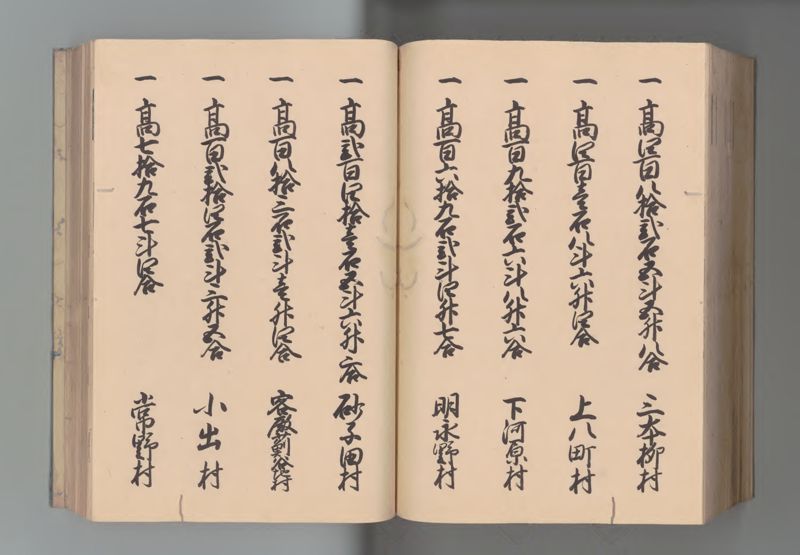 一 高四百八拾弐石五斗五升八合 三本柳村
一 高四百壱石八斗六升四合 上八町村
一 高百九拾弐石六斗八升六合 下河原村
一 高百六拾九石弐斗四升七合 明永野村
一 高弐百四拾壱石五斗六升二合 砂子田村
一 高百八拾三石弐斗壱升四合
一 高百弐拾四石弐斗三升五合 小出村
一 高七拾九石七斗四合 常野村